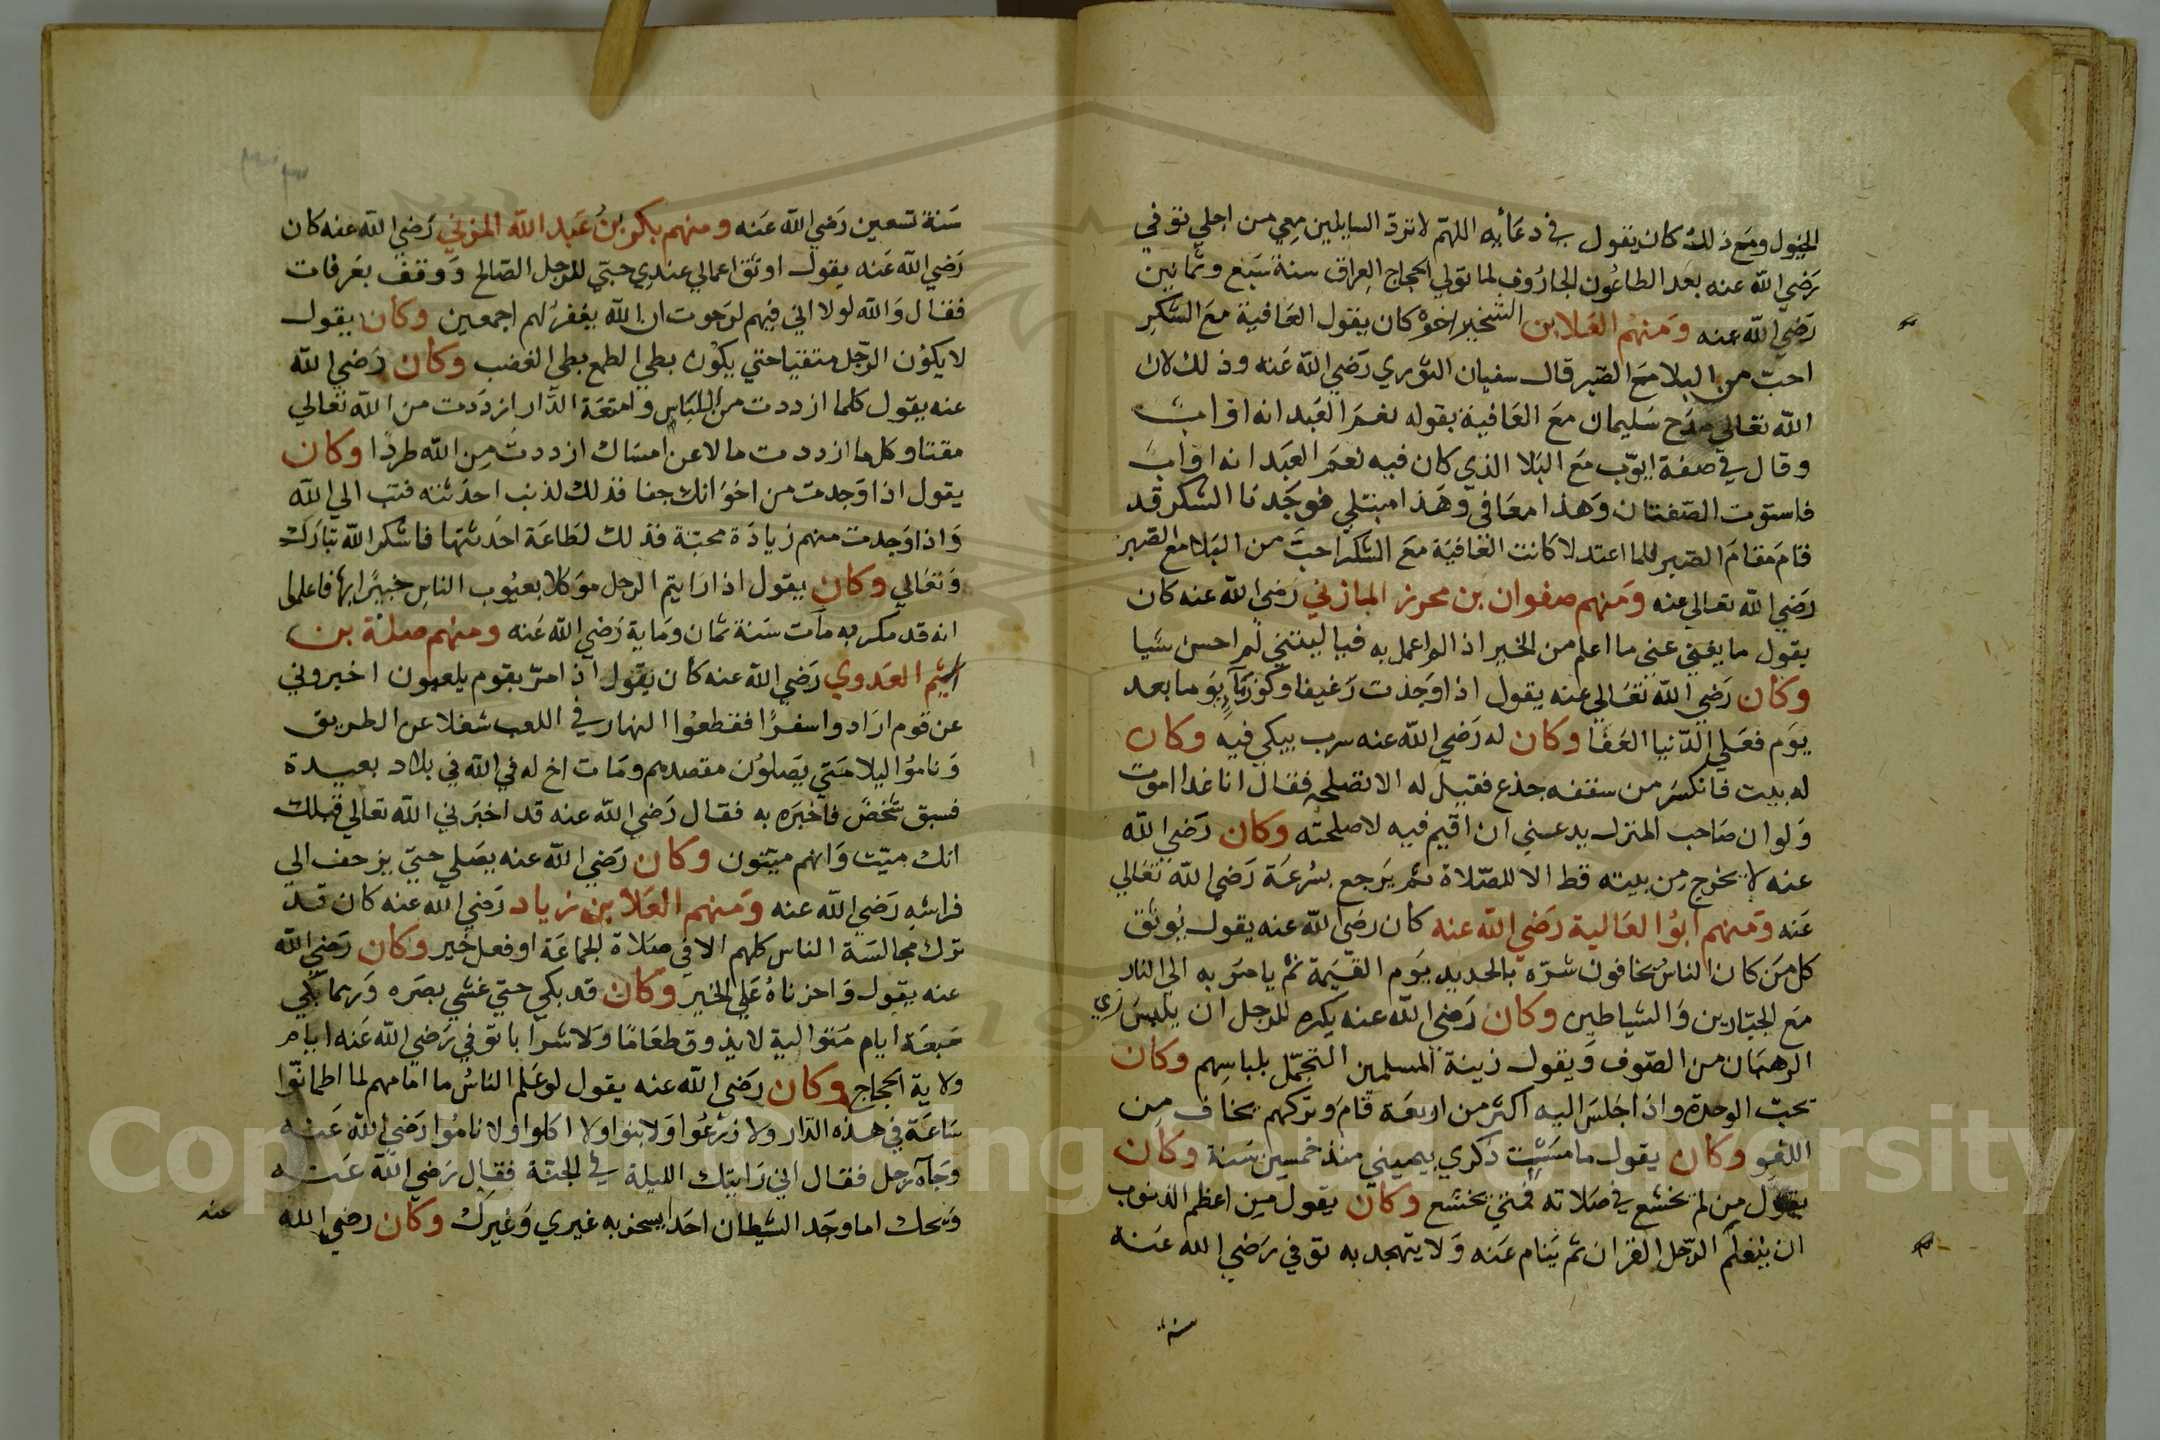 الخيول ومع ذلك كان يقول في دعائه اللهم لا ترد السايلين معي من اجلي توفي
رضي الله عنه بعد الطاعون الجاروف لما تولي الحجاج العراق سنة سبع وثمانين
رضي الله عنه ومنهم العلا بن الشخير اخوه كان يقول العافية مع الشكر
احب من البلا مع الصبر قال سفيان الثوري رضي الله عنه وذلك لان
الله تعالي مدح سليمان مع العافية بقوله نعم العبد انه اواب
وقال في صفة ايوب مع البلا الذي كان فيه نعم العبد انه اواب
فاستوت الصفتان وهذا معافي وهذا مبتلي فوجدنا الشكر قد
قام مقام الصبر فلما اعتدلا كانت العافية مع الشكر احب من البلا مع الصبر
رضي الله تعالي عنه ومنهم صفوان بن محرز المازني رضي الله عنه كان
يقول ما يغني عني ما اعلم من الخير اذا لم اعمل به فياليتني لم احسن شيا
وكان رضي الله تعالي عنه يقول اذا وجدت رغيفا وكوز ماء يوما بعد
يوم فعلي الدنيا العفا وكان له رضي الله عنه سرب يبكي فيه وكان
له بيت فانكسر من سقفه جذع فقيل له الا تصلحه فقال انا غدا اموت
ولو ان صاحب المنزل يدعني ان اقيم فيه لاصلحته وكان رضي الله
عنه لا يخرج من بيته قط الا للصلاة ثم يرجع بسرعة رضي الله تعالي
عنه ومنهم ابو العالية رضي الله عنه كان رضي الله عنه يقول يوثق
كل من كان الناس يخافون شره بالحديد يوم القيمة ثم يامر به الي النار
مع الجبارين والشياطين وكان رضي الله عنه يكره للرجل ان يلبس زي
الرهبان من الصوف ويقول زينة المسلمين التجمل بلباسهم وكان
يحب الوحدة واذا جلس اليه اكثر من اربعة قام وتركهم يخاف من
اللغو وكان يقول ما مسست ذكري بيميني منذ خمسين سنة وكان
يقول من لم يخشع في صلاته فمتي يخشع وكان يقول من اعظم الذنوب
ان يتعلم الرجل القران ثم ينام عنه ولا يتهجد به توفي رضي الله عنه
سنة
سنة تسعين رضي الله عنه ومنهم بكر بن عبد الله المزني رضي الله عنه كان
رضي الله عنه يقول اوثق اعمالي عندي حبي للرجل الصالح ووقف بعرفات
فقال والله لولا اني فيهم لرجوت ان الله يغفر لهم اجمعين وكان يقول
لا يكون الرجل متقيا حتي يكون بطي الطمع بطي الغضب وكان رضي الله
عنه يقول كلما ازددت من اللباس وامتعة الدار ازددت من الله تعالي
مقتا وكلما ازددت مالا عن امساك ازددت من الله طردا وكان
يقول اذا وجدت من اخوانك جفا فذلك لذنب احدثته فتب الي الله
واذا وجدت منهم زيادة محبة فذلك لطاعة احدثتها فاشكر الله تبارك
وتعالي وكان يقول اذا رايتم الرجل موكلا بعيوب الناس خبيرا بها فاعلموا
انه قد مكر به مات سنة ثمان وماية رضي الله عنه ومنهم صلة بن
اشيم العدوي رضي الله عنه كان يقول اذا مر بقوم يلعبون اخبروني
عن قوم ارادوا سفرا فقطعوا النهار في اللعب شغلا عن الطريق
وناموا ليلا متي يصلون مقصدهم ومات اخ له في الله في بلاد بعيدة
فسبق شخص فاخبره به فقال رضي الله عنه قد اخبرني الله تعالي قبلك
انك ميت وانهم ميتون وكان رضي الله عنه يصلي حتي يزحف الي
فراشه رضي الله عنه ومنهم العلا بن زياد رضي الله عنه كان قد
ترك مجالسة الناس كلهم الا في صلاة الجماعة او فعل خير وكان رضي الله
عنه يقول واحزناه علي الخير وكان قد بكي حتي غشي بصره وربما بكي
سبعة ايام متوالية لا يذوق طعاما ولا شرابا توفي رضي الله عنه ايام
ولاية الحجاج وكان رضي الله عنه يقول لو علم الناس ما امامهم لما اطمانوا
ساعة في هذه الدار ولا زرعوا ولا بنوا ولا اكلوا ولا ناموا رضي الله عنه
وجاه رجل فقال اني رايتك الليلة في الجنة فقال رضي الله عنه
ويحك اما وجد الشيطان احدا يسخر به غيري وغيرك وكان رضي الله
عنه
Copyright © King Saud University